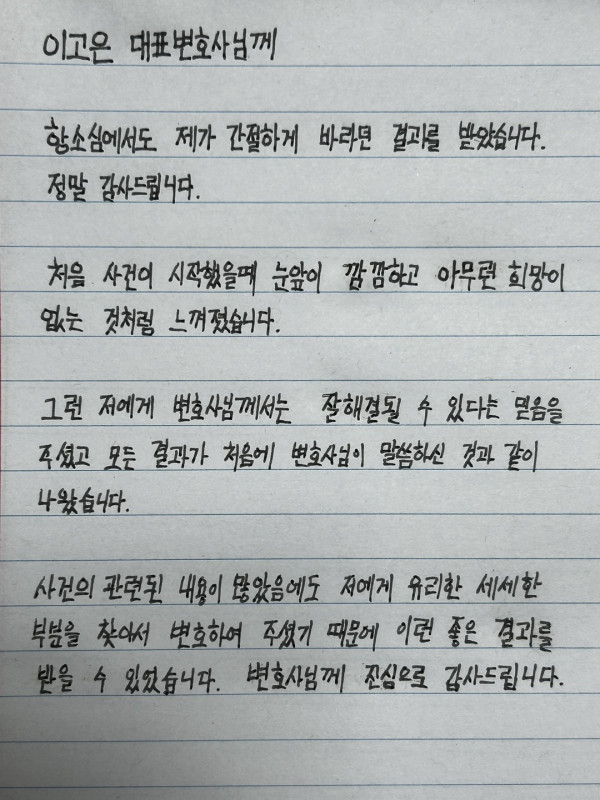 이고은 대표변호사님께
항소심에서도 제가 간절하게 바라던 결과를 받았습니다.
정말 감사드립니다.
처음 사건이 시작했을때 눈앞이 깜깜하고 아무런 희망이
없는 것처럼 느껴졌습니다.
그런 저에게 변호사님께서는 잘해결될 수 있다는 믿음을
주셨고 모든 결과가 처음에 변호사님이 말씀하신 것과 같이
나왔습니다.
사건의 관련된 내용이 많았음에도 저에게 유리한 세세한
부분을 찾아서 변호하여 주셨기 때문에 이런 좋은 결과를
받을 수 있었습니다. 변호사님께 진심으로 감사드립니다.